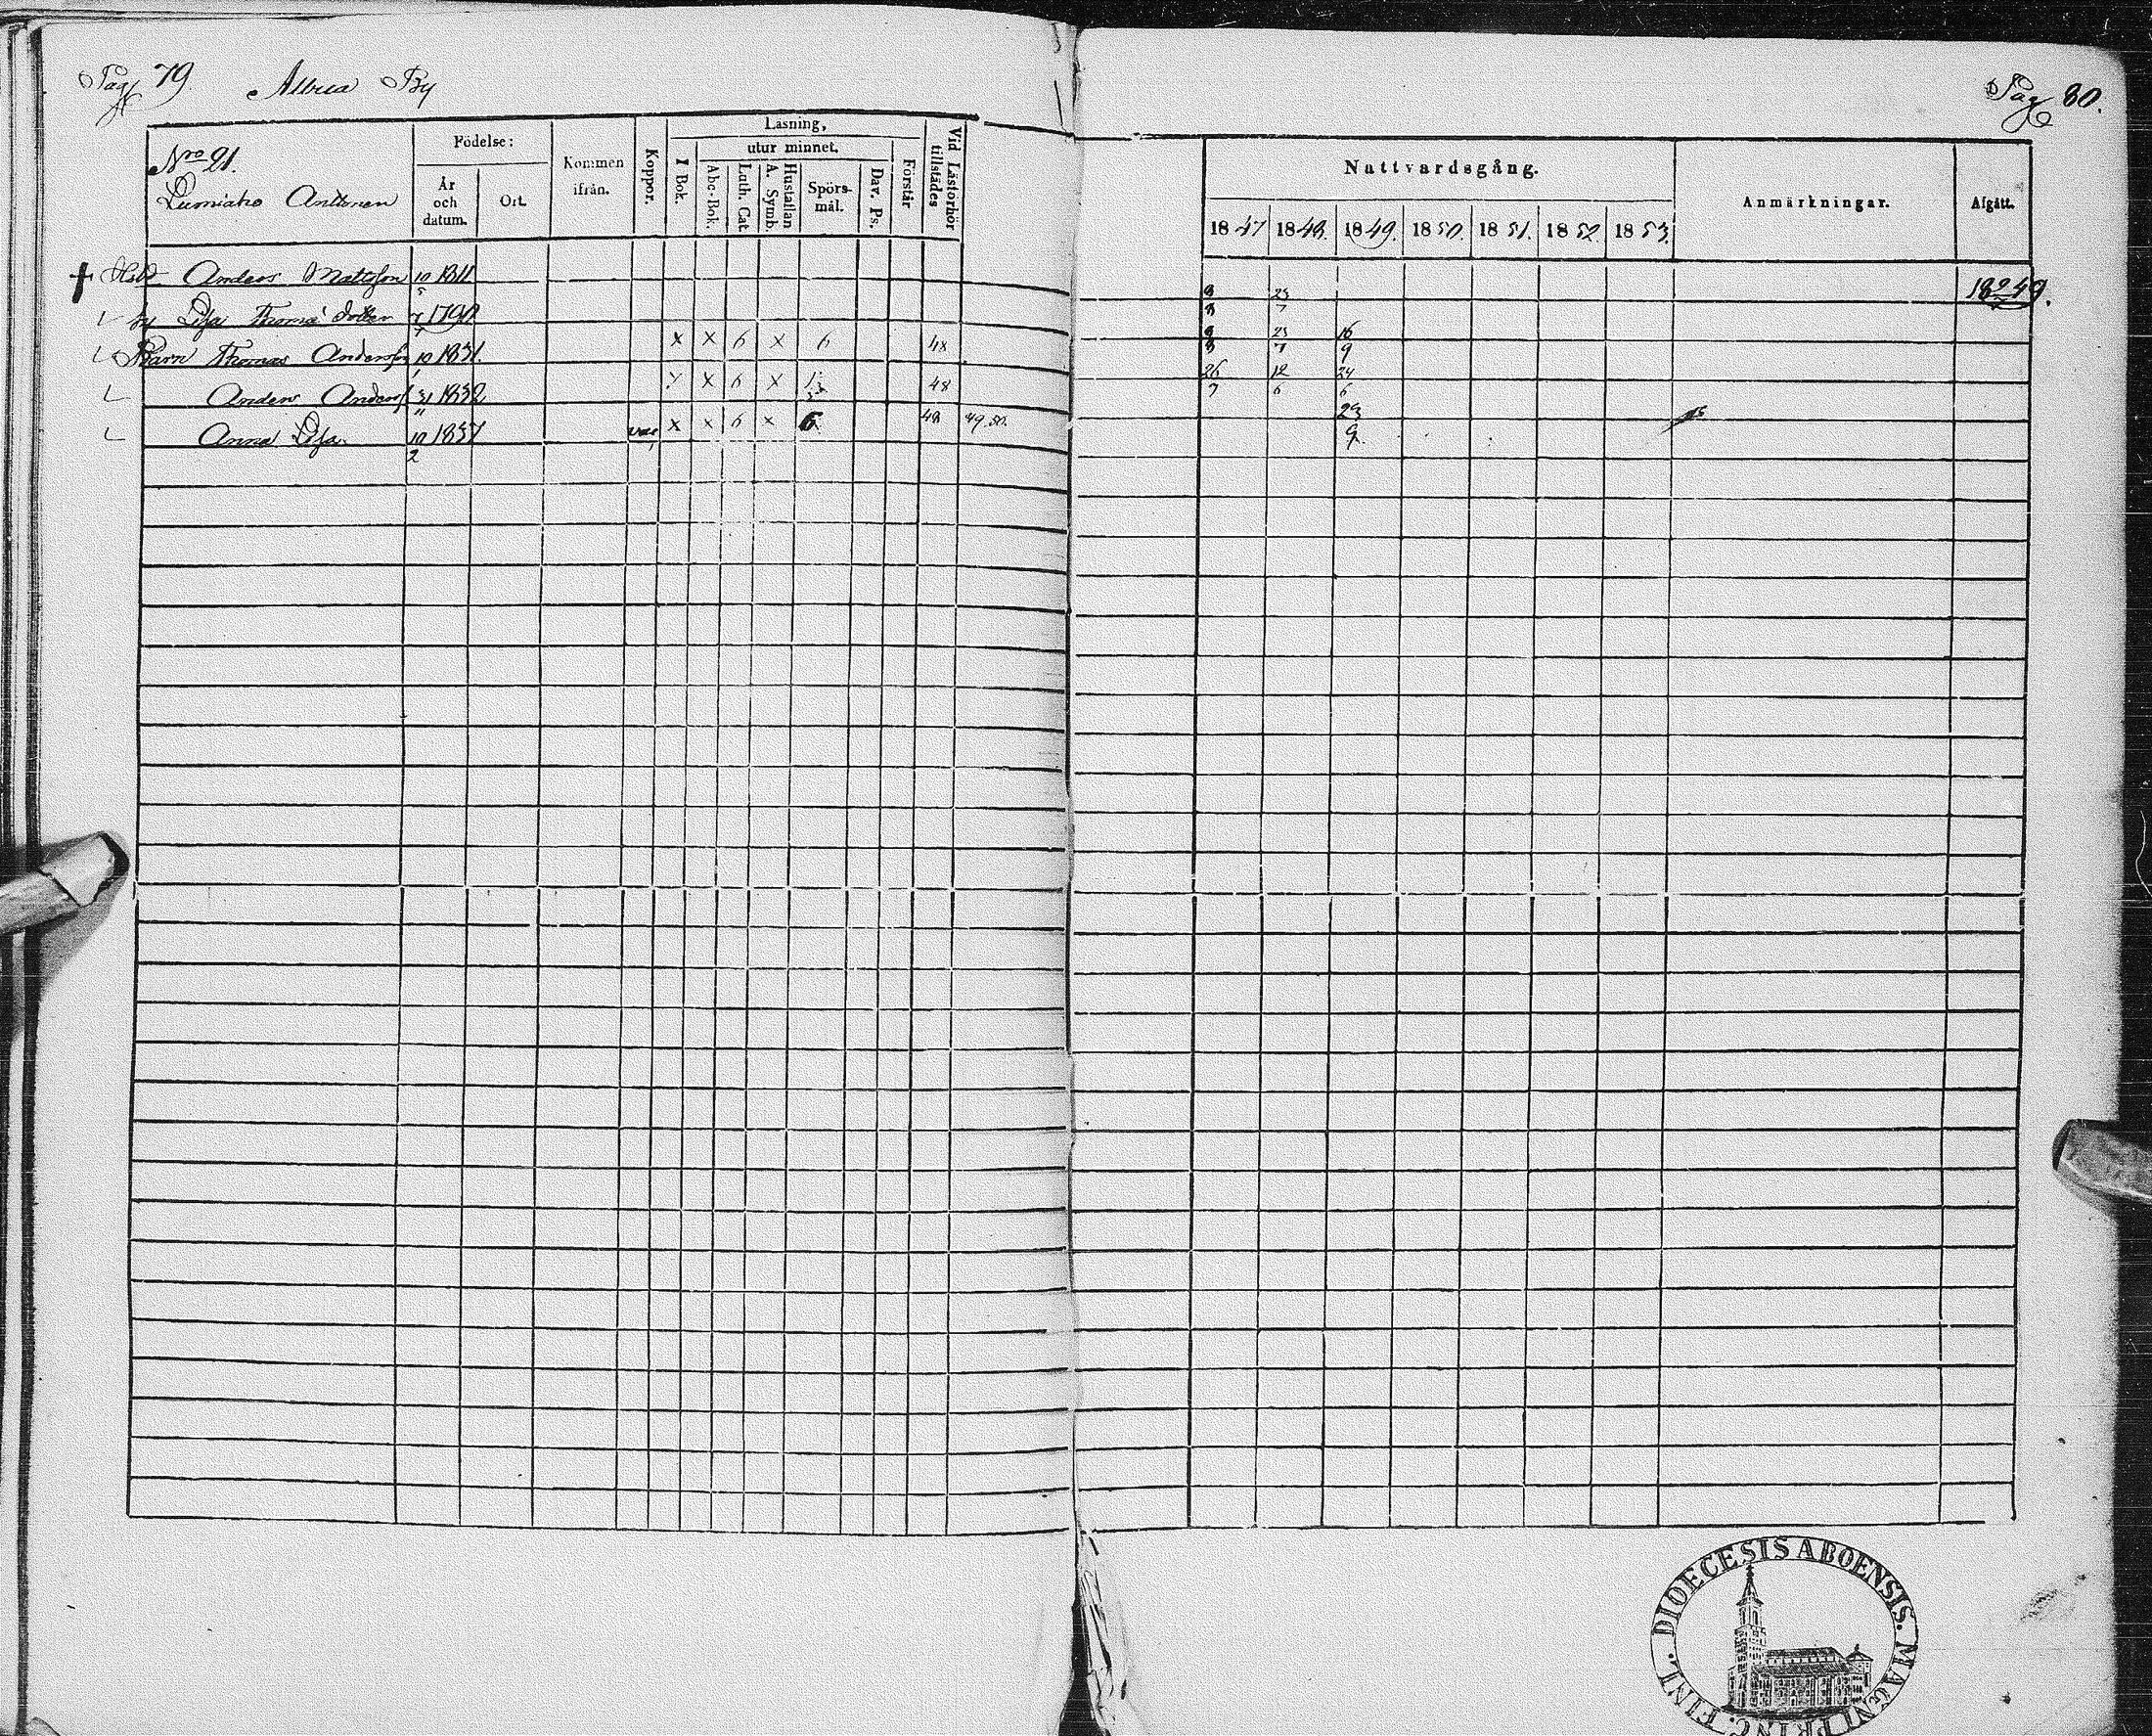 Pag 79 Allua By
Pag 80.
Nro 21.
Lumiaho Anttonen
Födelse:
År och datum.
Ort.
Kommen ifrån.
Koppor.
Läsning,
I Bok.
utur minnet.
Abc-Bok.
Luth. Cat
Hustaflan A. Symb.
Spörs-mål.
Dav. Ps.
Förstår
Vid Läsförhör tillstädes
Nattvardsgång.
1847 1848. 1849. 1850. 1851. 1852. 1853.
Anmärkningar.
Afgått.
Anders Mattsson 10/5 1811 8/8 23/7 1849.
Lisa Thomæ dotter 7 1790 8/8 23/7 16/9
Barn Thomas Andersson 10 1831. x x 6 x 6 48 26/7 12/6 24/6
Anders Anders 31 1832 x x 6 x 48 23/9
Anna Lisa 10/2 1837 vac x x 6 x 6 48 49.50.
DIOECESIS ABOENSIS. MAGNI PRINC. FINL.